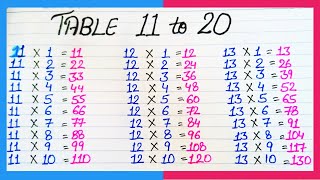 TABLE 11 to 20
11 × 1 = 11
11 × 2 = 22
11 × 3 = 33
11 × 4 = 44
11 × 5 = 55
11 × 6 = 66
11 × 7 = 77
11 × 8 = 88
11 × 9 = 99
11 × 10 = 110
12 × 1 = 12
12 × 2 = 24
12 × 3 = 36
12 × 4 = 48
12 × 5 = 60
12 × 6 = 72
12 × 7 = 84
12 × 8 = 96
12 × 9 = 108
12 × 10 = 120
13 × 1 = 13
13 × 2 = 26
13 × 3 = 39
13 × 4 = 52
13 × 5 = 65
13 × 6 = 78
13 × 7 = 91
13 × 8 = 104
13 × 9 = 117
13 × 10 = 130